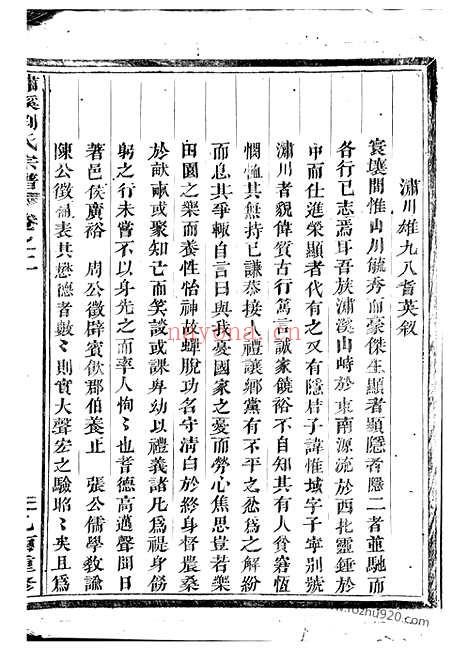 瀟川雄九八耆英叙
寰壤間惟山川毓秀而豪傑生顯者顯隱者隱二者並馳而
各行已志焉耳吾族瀟溪山峙於東南源流於西北靈鍾於
中而仕進榮顯者代有之又有隱桔子諱惟城字子寧别號
瀟川者貌偉質古行篤言誠家饒裕不自知其有人貧窘恆
憫恤其無持已謙恭接人禮讓鄉黨有不平之忿為之解紛
而息其爭輒自言曰與我憂國家之憂而勞心焦思豈若樂
田園之樂而養性怡神故蟬脫功名守清白於終身督農桑
於畎畝或聚知已而笑談或課子幼以禮義諸凡為禔身飭
躬之行未嘗不以身先之而率人恂〻也耆德高邁聲聞日
著邑侯廣裕 周公徵辟賓飲郡伯養止 張公儒學教諭
陳公徵 表其懋德者數〻則實大聲宏之驗昭〻矣且為
瀟溪劉氏宗譜 卷之二
重修
nayona.cn
www.fozhu920.com